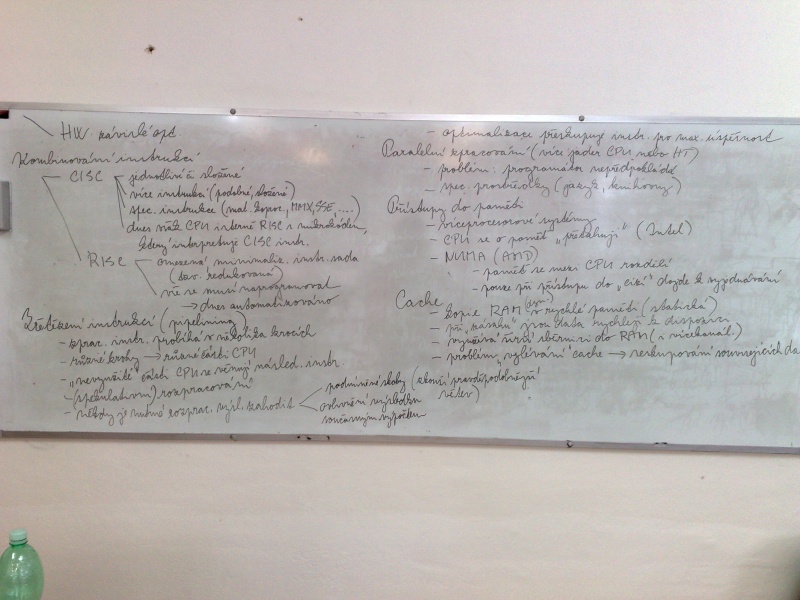 HW. závislé opt.
Kombinování instrukcí
- CISC - jednotlivé či složené
- více instrukcí (podobné, složené)
- spec. instrukce (mat. koproc., MMX, SSE, ....)
- dnes však CPU interně RISC s mikrokódem,
který interpretuje CISC instr.
RISC - omezená minimaliz. instr. sada
(tzv. redukovaná)
- vše se musí naprogramovat
→ dnes automatizováno
Zřetězení instrukcí (pipelining)
- zprac. instr. probíhá v několika krocích
- různé kroky → různé části CPU
- "nevyužité" části CPU se věnují násled. instr.
- (spekulativní) rozpracování
- někdy je nutné rozprac. výsl. zahodit
podmíněné skoky (zkouší pravděpodobnější
větev)
ovlivnění výsledku
současným výpočtem
- optimalizace přeskupuje instr. pro max. úspěšnost
Paralelní zpracování (více jader CPU nebo HT)
- problém: programátor nepředpokládá
- spec. prostředky (jazyk, knihovny)
Přístupy do paměti
- víceprocesorové systémy
- CPU se o paměť "přetahují" (Intel)
- NUMA (AMD)
- paměť se mezi CPU rozdělí
- pouze při přístupu do "cizí" dojde k vyjednávání
Cache
- kopie RAM (dyn.) v rychlé paměti (statická)
- při "zásahu" jsou data rychleji k dispozici
- využívá širší sběrnici do RAM (i vícekanál.)
- problémy vylévání cache → seskupování souvisejících da